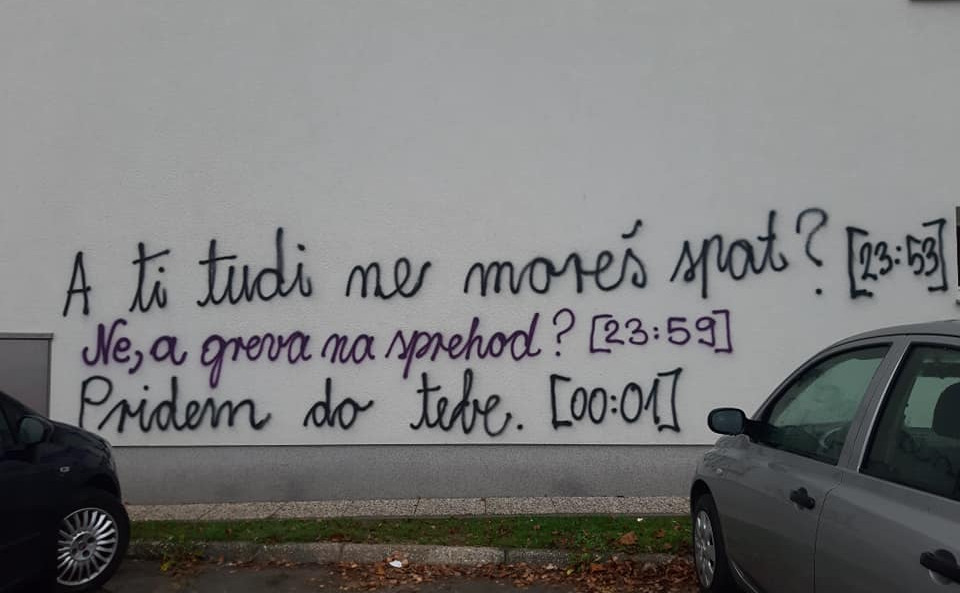 A ti tudi ne moreš spat? [23:53]
Ne, a greva na sprehod? [23:59]
Pridem do tebe. [00:01]